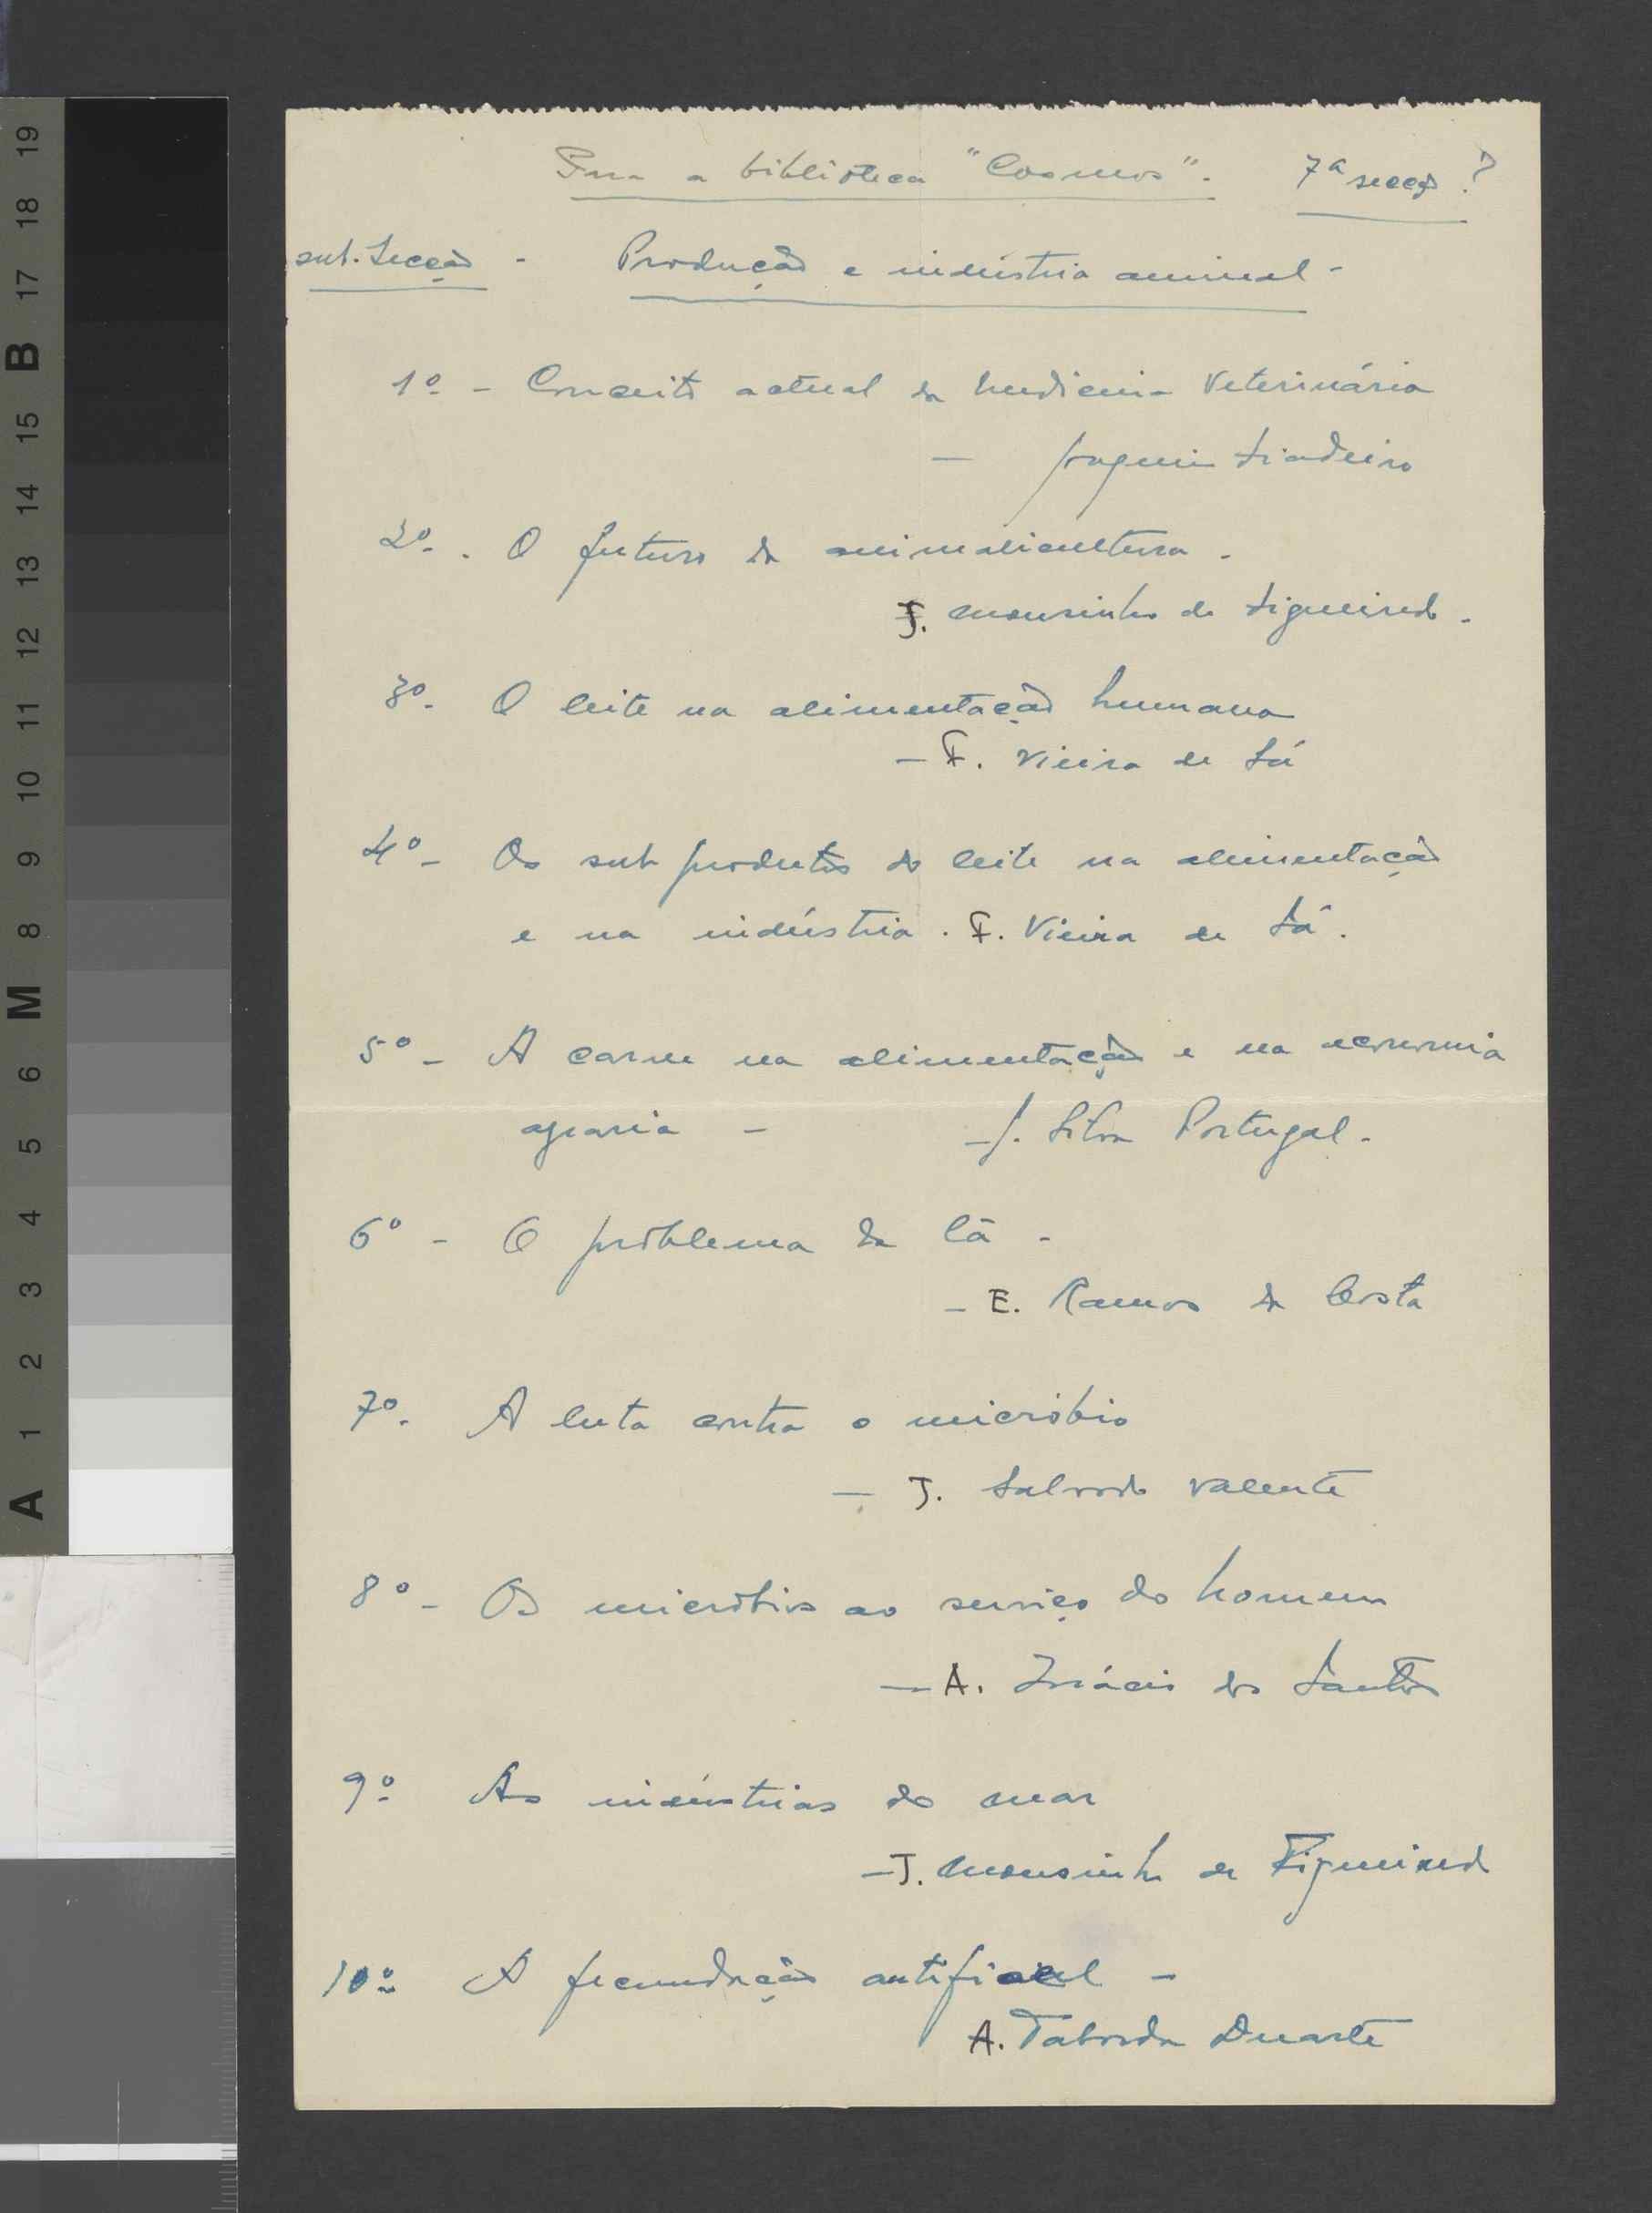 Para a biblioteca "Cosmos". 7ª secção?
sub-Secção - Produção e indústria animal -
1º - Conceito actual da Medicina Veterinária
- Joaquim Fiadeiro
2º - O futuro da animalicultura -
J. Mousinho de Figueiredo -
3º - O leite na alimentação humana
- F. Vieira de Sá
4º - Os sub produtos do leite na alimentação
e na indústria. F. Vieira de Sá.
5º - A carne na alimentação e na economia
agrária - - J. Silva Portugal -
6º - O problema da lã -
- E. Ramos da Costa
7º - A luta contra o micróbio
- J. Salvado Valente
8º - Os micróbios ao serviço do homem
- A. Inácio dos Santos
9º As indústrias do mar
- J. Mousinho de Figueiredo
10º A fecundação artificial -
A. Taborda Duarte
19
18
17
B
16
15
14
13
12
11
10
9
8
M
6
5
4
3
2
1
A